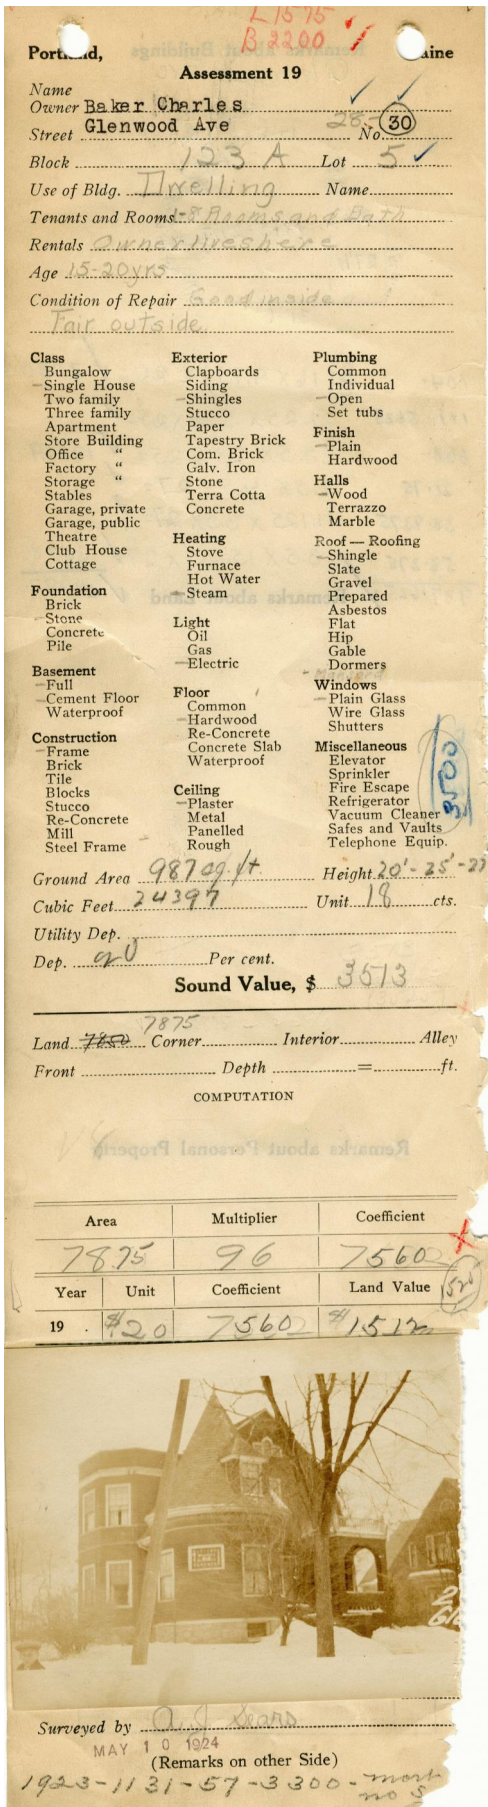 L 1575
B 2200
Portland, Maine
Assessment 19
Name
Owner Baker Charles
Glenwood Ave
Street 28- No. 30
Block 123 A Lot 5
Use of Bldg. Dwelling Name
Tenants and Rooms 1-8 Rooms and Bath
Rentals Owner lives here
Age 15-20 yrs
Condition of Repair Good inside
Fair outside
Class
Bungalow
Single House
Two family
Three family
Apartment
Store Building
Office "
Factory "
Storage "
Stables
Garage, private
Garage, public
Theatre
Club House
Cottage
Foundation
Brick
Stone
Concrete
Pile
Basement
Full
Cement Floor
Waterproof
Construction
Frame
Brick
Tile
Blocks
Stucco
Re-Concrete
Mill
Steel Frame
Exterior
Clapboards
Siding
Shingles
Stucco
Paper
Tapestry Brick
Com. Brick
Galv. Iron
Stone
Terra Cotta
Concrete
Heating
Stove
Furnace
Hot Water
Steam
Light
Oil
Gas
Electric
Floor
Common
Hardwood
Re-Concrete
Concrete Slab
Waterproof
Ceiling
Plaster
Metal
Panelled
Rough
Plumbing
Common
Individual
Open
Set tubs
Finish
Plain
Hardwood
Halls
Wood
Terrazzo
Marble
Roof — Roofing
Shingle
Slate
Gravel
Prepared
Asbestos
Flat
Hip
Gable
Dormers
Windows
Plain Glass
Wire Glass
Shutters
Miscellaneous
Elevator
Sprinkler
Fire Escape
Refrigerator
Vacuum Cleaner
Safes and Vaults
Telephone Equip.
3500
Ground Area 987 sq. ft Height 20'-25'-27
Cubic Feet 24397 Unit 18 cts.
Utility Dep.
Dep. 20 Per cent.
Sound Value, $ 3513
7875
Land 7850 Corner Interior Alley
Front Depth = ft.
COMPUTATION
Remarks about Personal Property
Area Multiplier Coefficient
7875 96 7560
Year Unit Coefficient Land Value
19 . $20 7560 $1512
Surveyed by A. J Sears
MAY 10 1924
(Remarks on other Side)
1923-1131-57-3300-